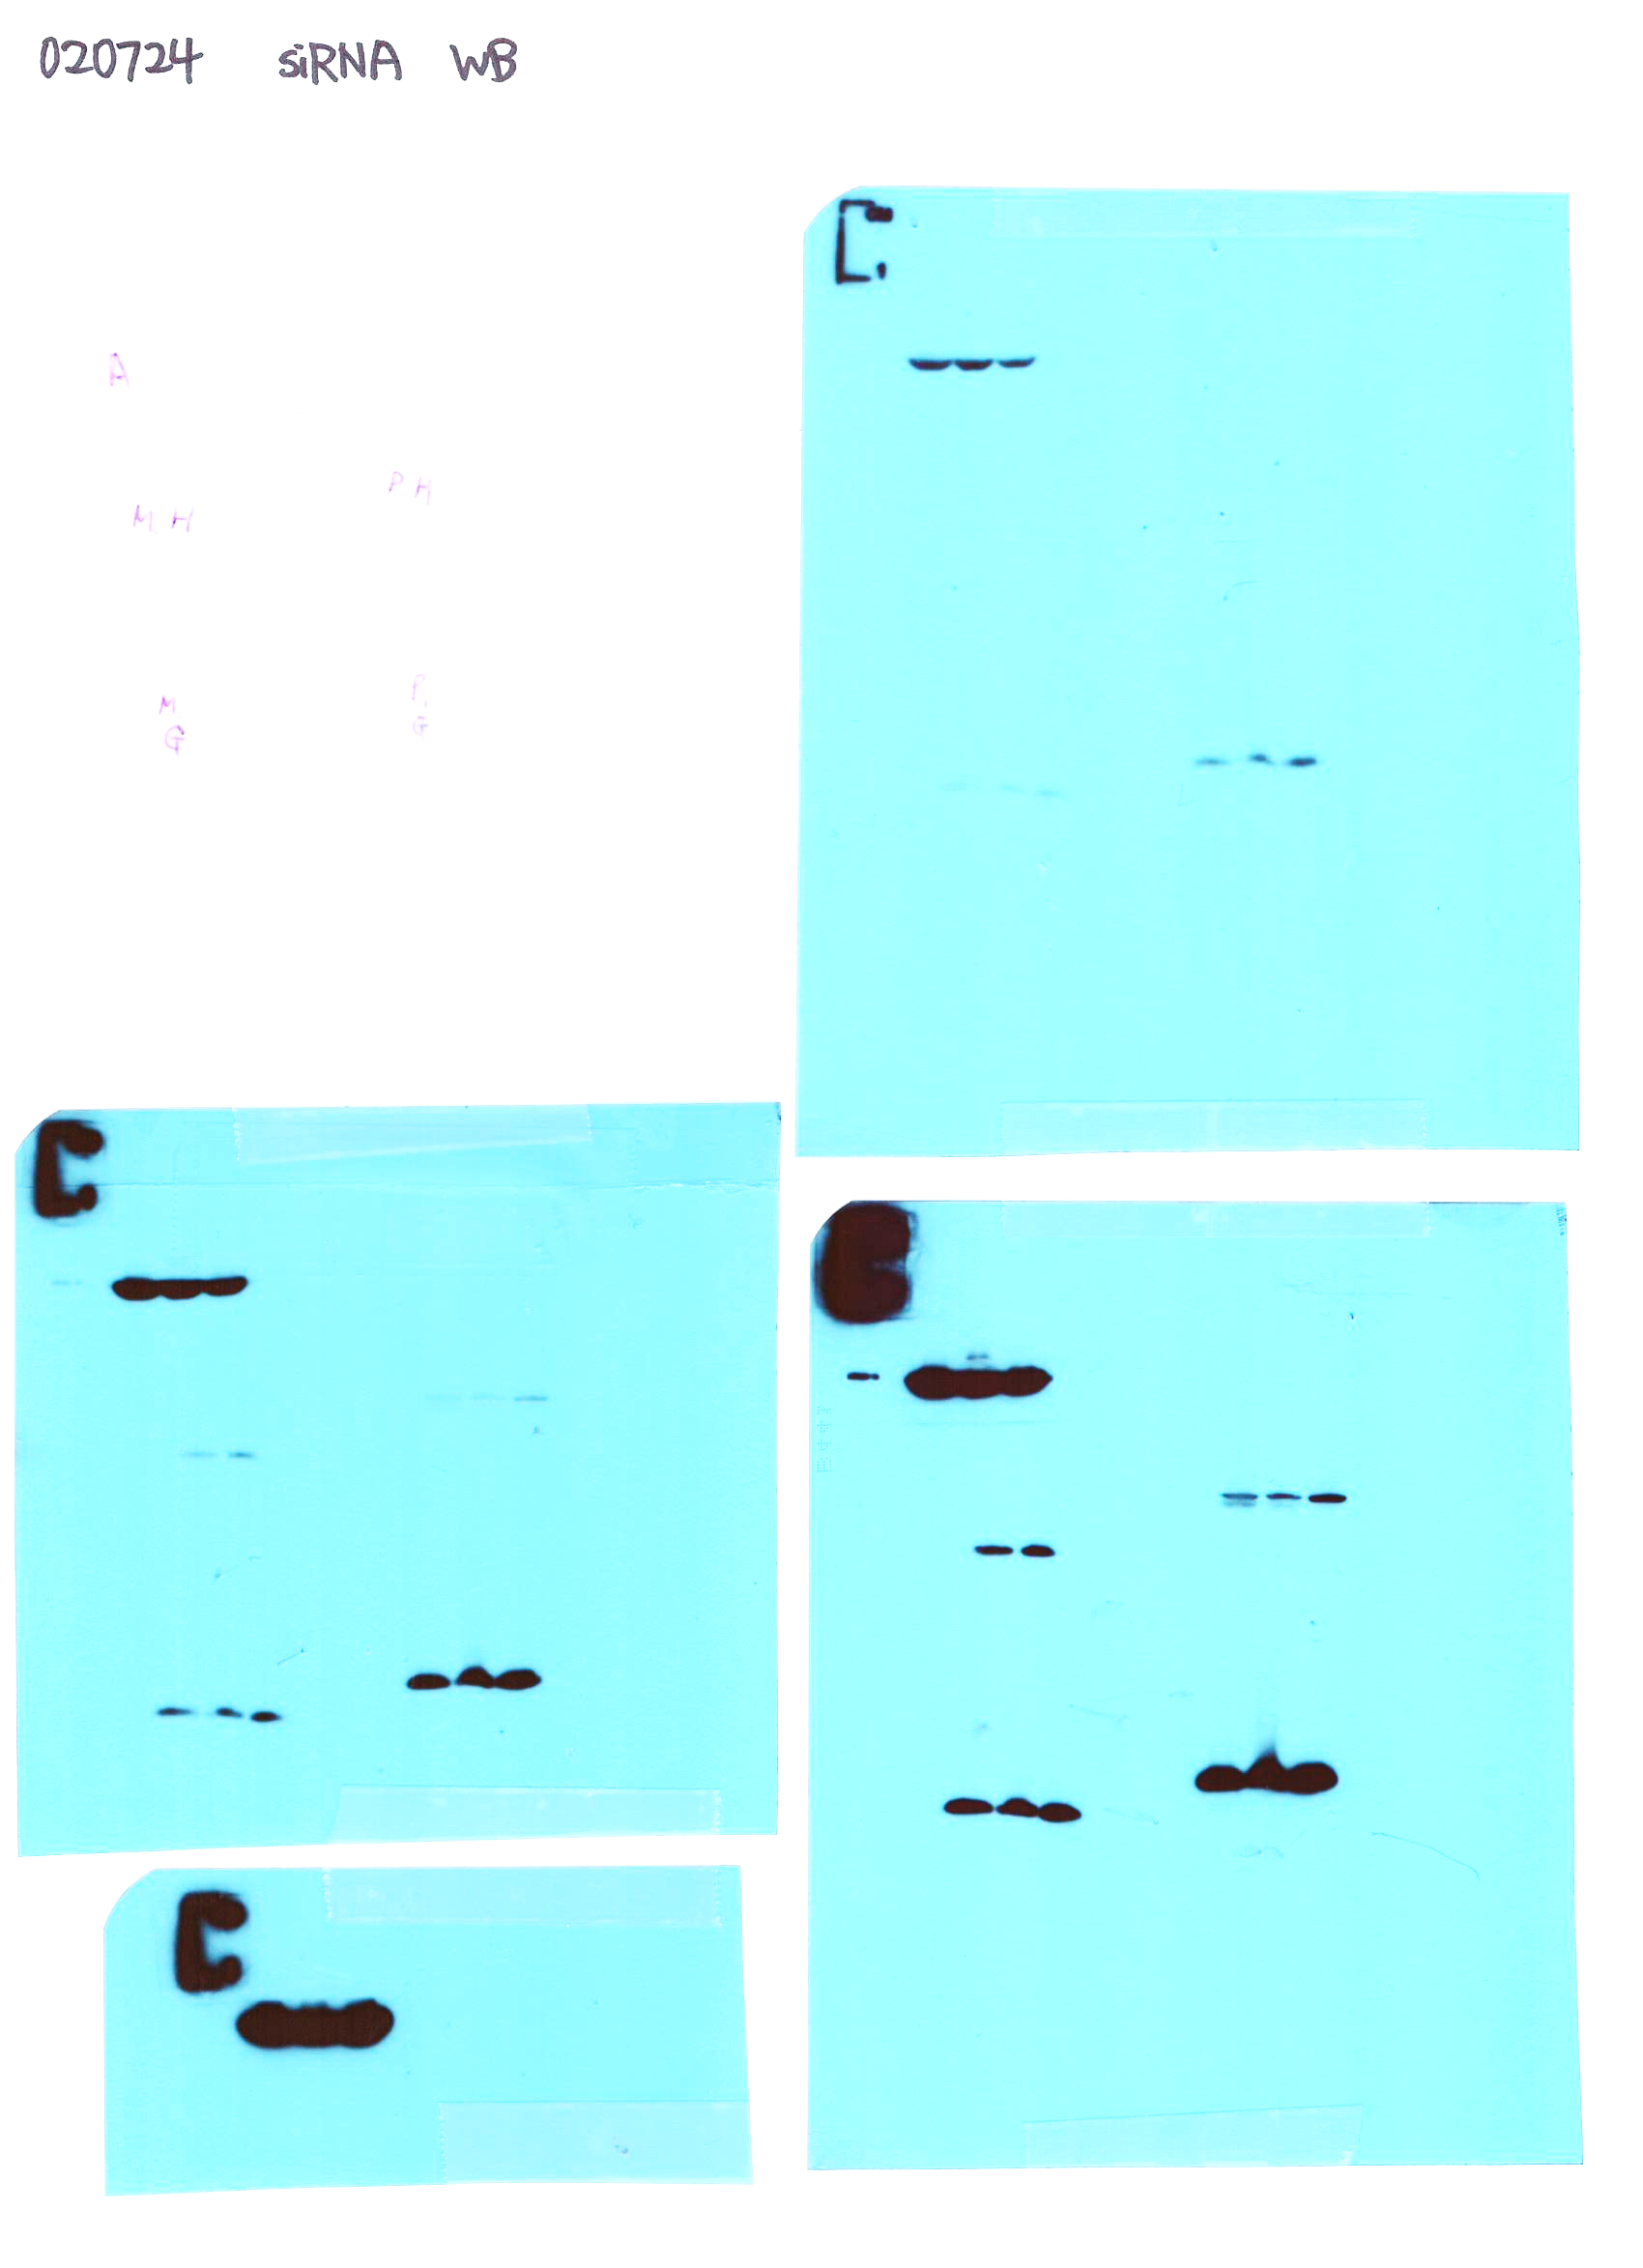 020724 siRNA WB
A
P H
M H
M
G
P.
G